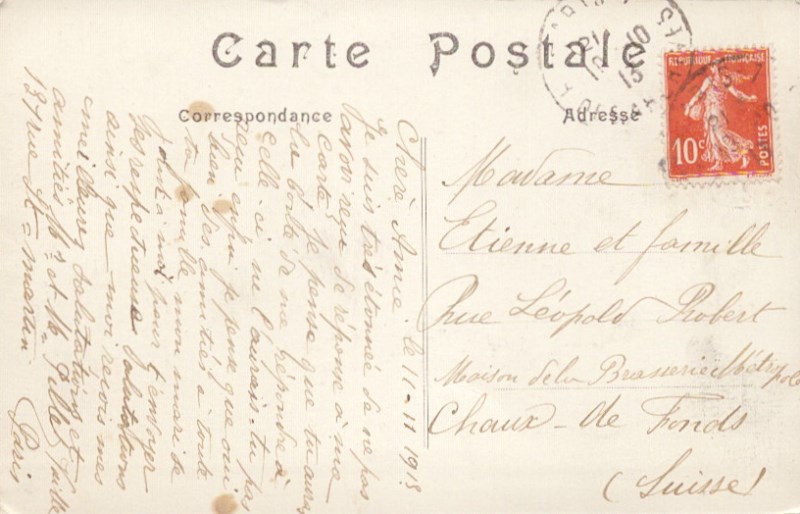 Carte Postale
Correspondance
Adresse
RÉPUBLIQUE FRANÇAISE
10c
POSTES
21
10
13
Chère Amie le 11-11 1913
Je suis très étonnée de ne pas
avoir reçu de réponse à ma
carte Je pense que tu auras
la bonté de me répondre à
celle-ci ne l'aurais-tu pas
reçu enfin je pense que oui
Des amitiés à toute
ta famille mon mari de
joint à moi pour t'envoyer
ses respectueuses Salutations
ainsi que moi reçois mes
meilleurs Salutations et
amitiés Mr et Me Gille
137 rue St-martin Paris
Madame
Etienne et famille
Rue Léopold Robert
Maison de la Brasserie Métropole
Chaux-de Fonds
(Suisse)